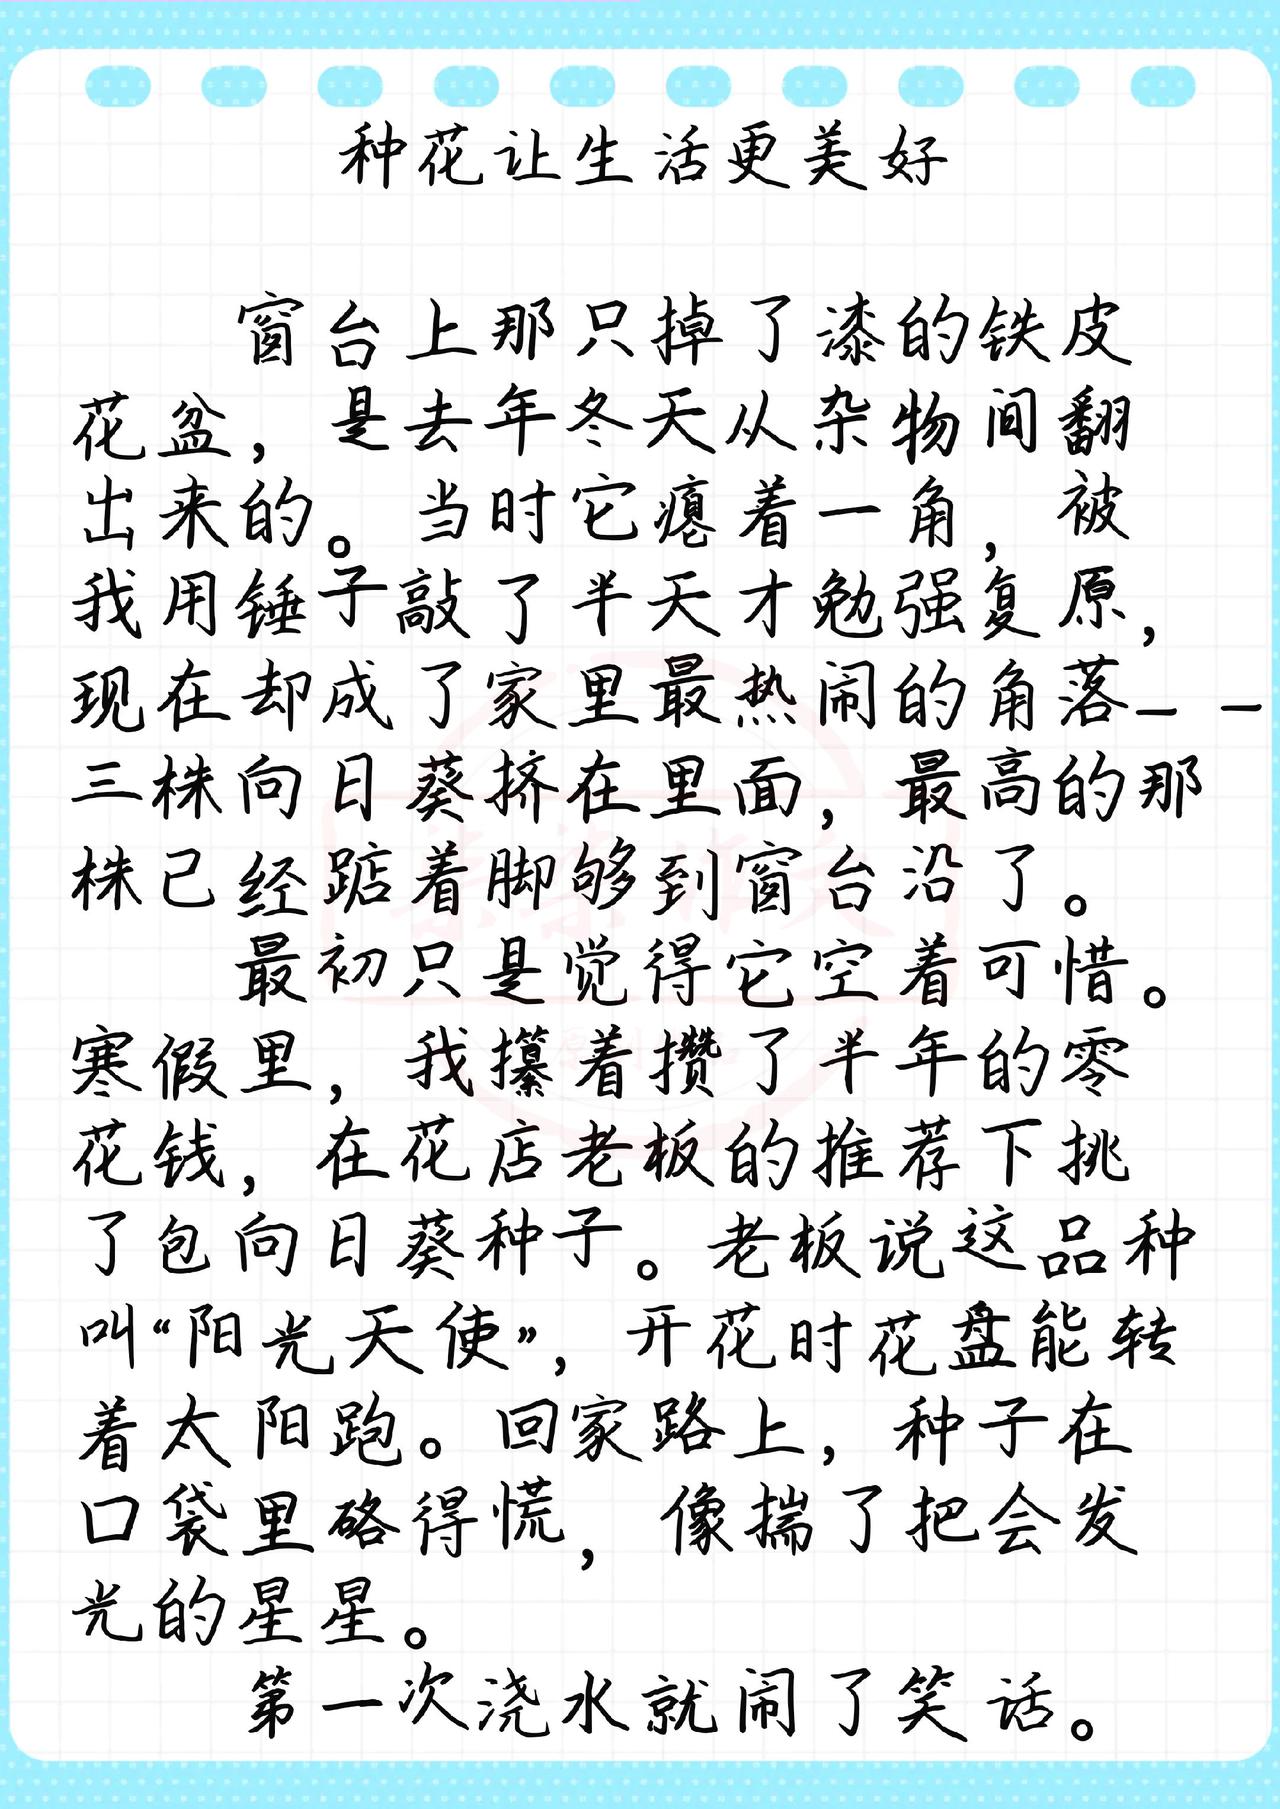 种花让生活更美好
窗台上那只掉了漆的铁皮
花盆，是去年冬天从杂物间翻
出来的。当时它瘪着一角，被
我用锤子敲了半天才勉强复原，
现在却成了家里最热闹的角落——
三株向日葵挤在里面，最高的那
株已经踮着脚够到窗台沿了。
最初只是觉得它空着可惜。
寒假里，我攥着攒了半年的零
花钱，在花店老板的推荐下挑
了包向日葵种子。老板说这品种
叫“阳光天使”，开花时花盘能转
着太阳跑。回家路上，种子在
口袋里硌得慌，像揣了把会发
光的星星。
第一次浇水就闹了笑话。